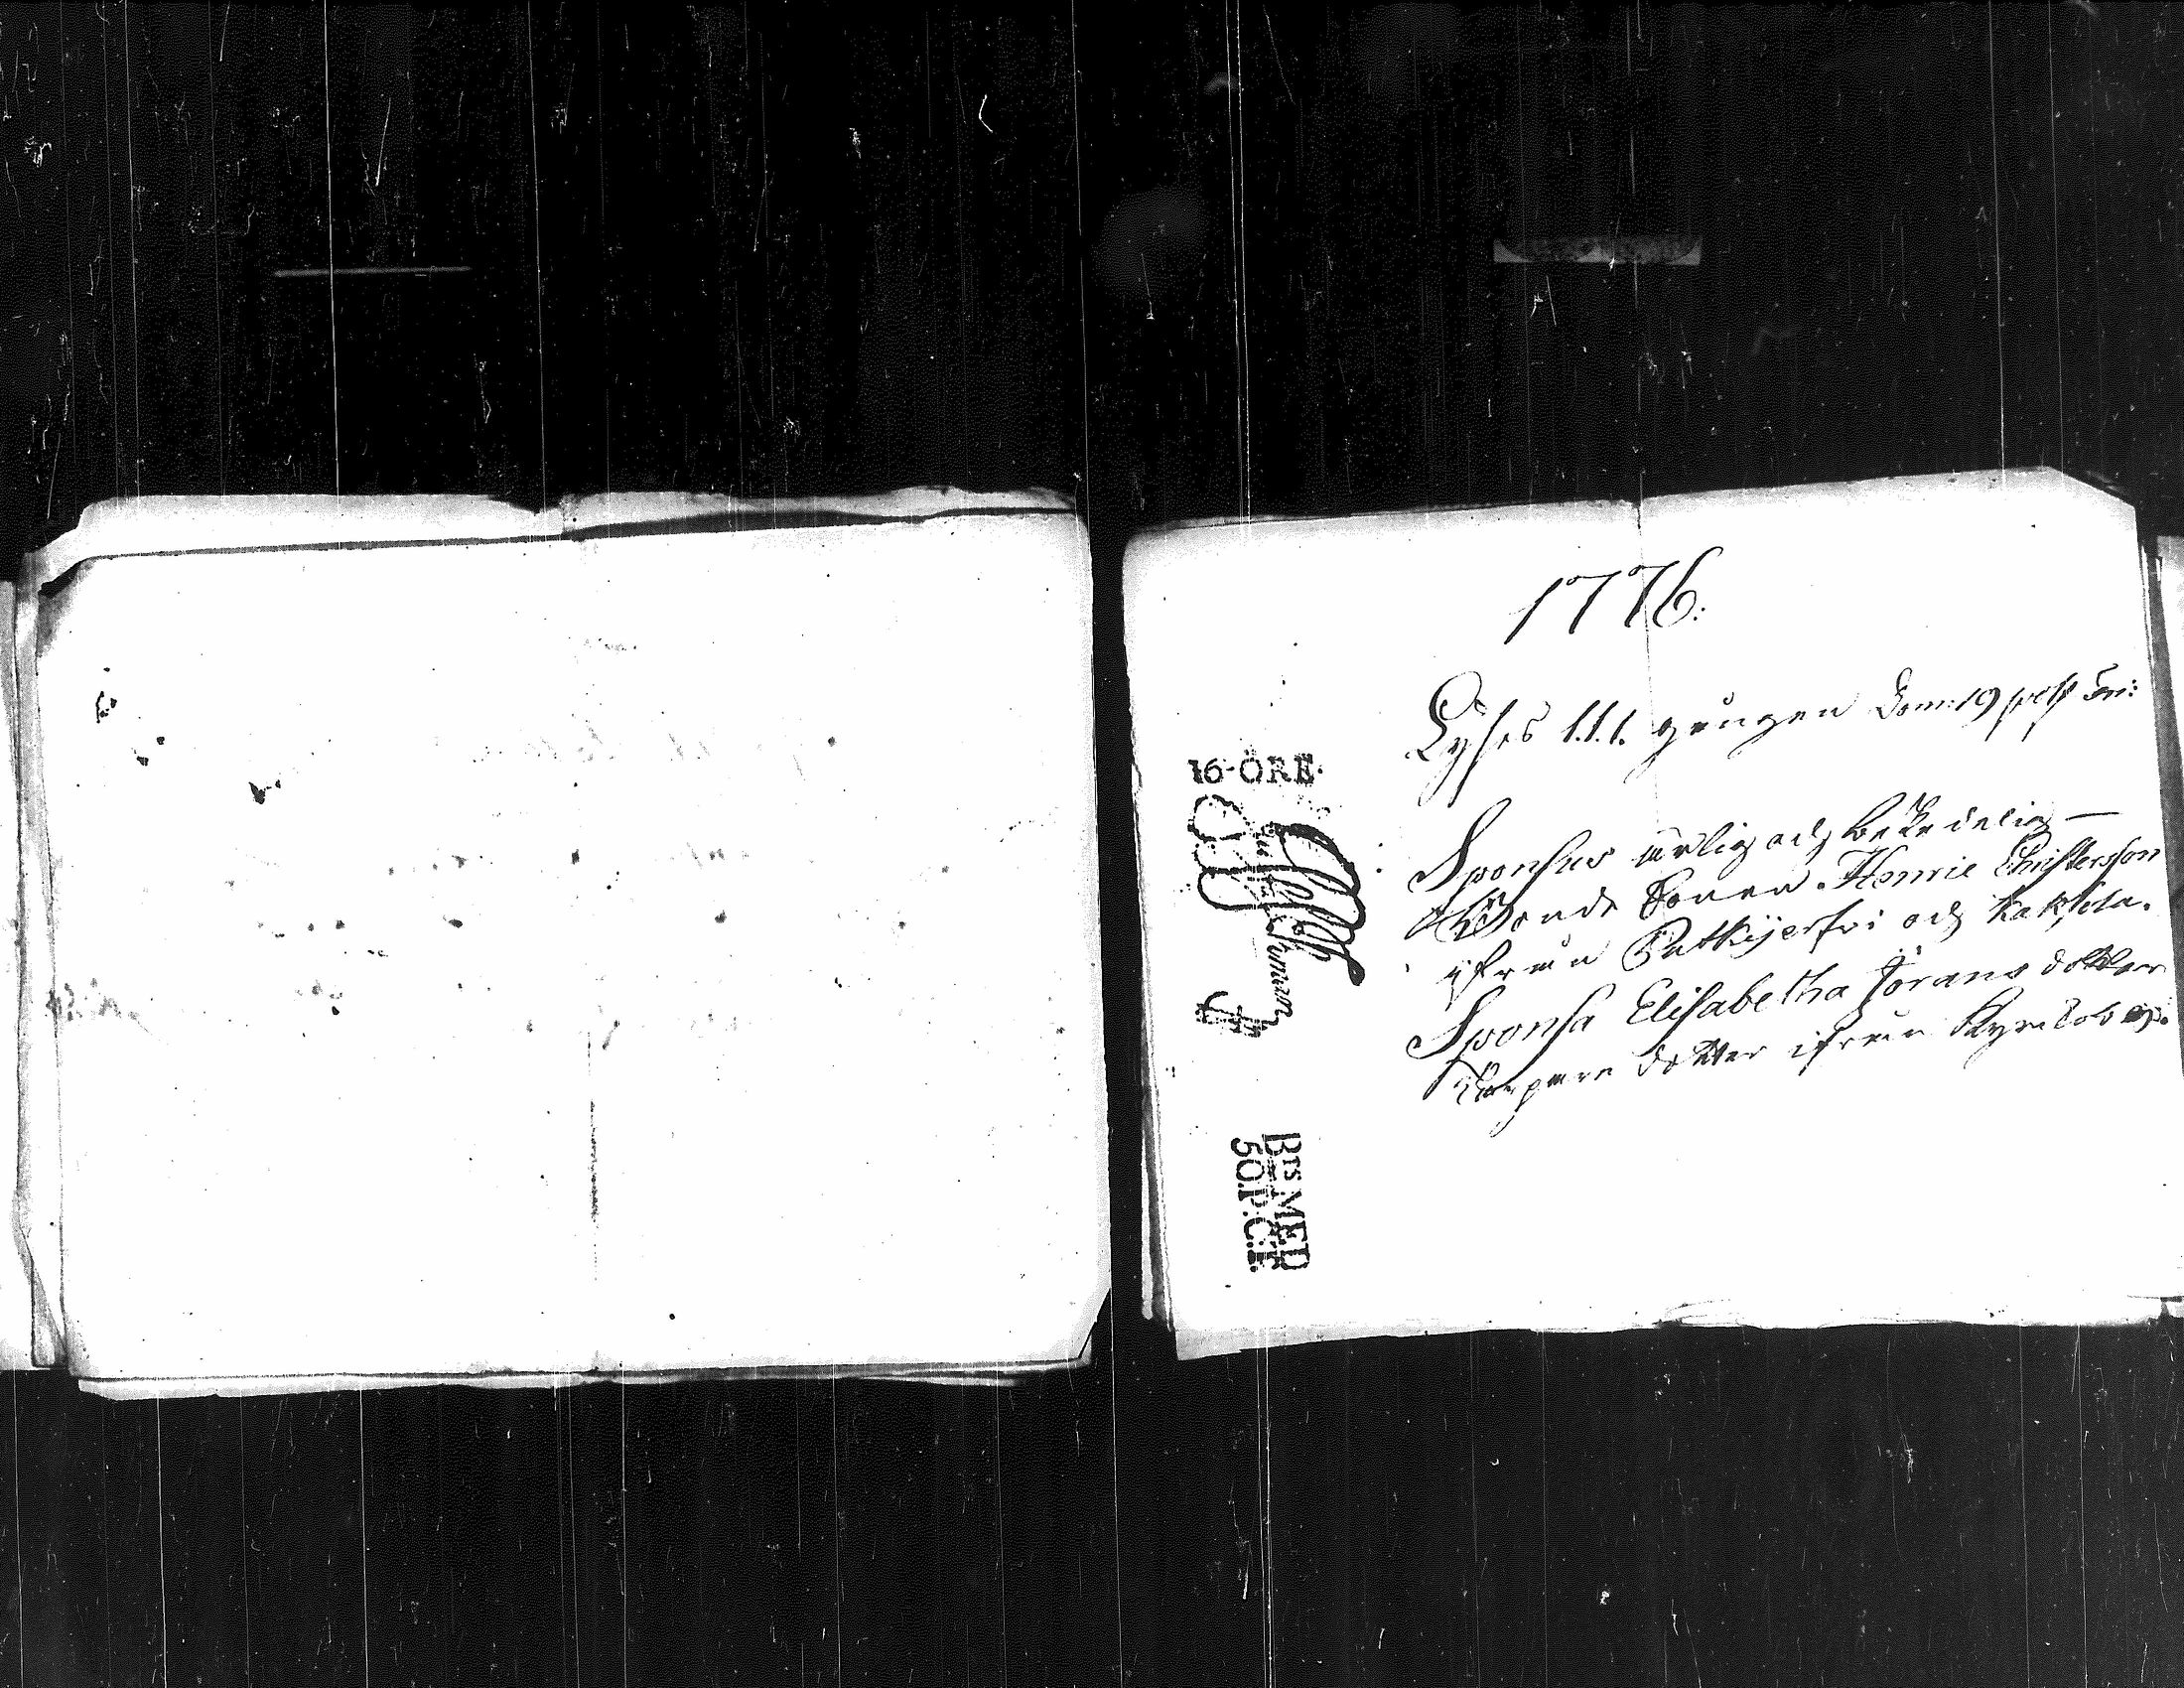 1776.
Lyses 1.1.1. gången Dom: 19 post Tri:
16·ÖRE·
Sponsus ärlig och beskedelig —
Bonde Sonen Henric Christersson
ifrån Patkijerfvi och Kaksola.
Sponsa Elisabetha Jörans dotter
dotter ifrån
BTS MED
50.P:C:T.